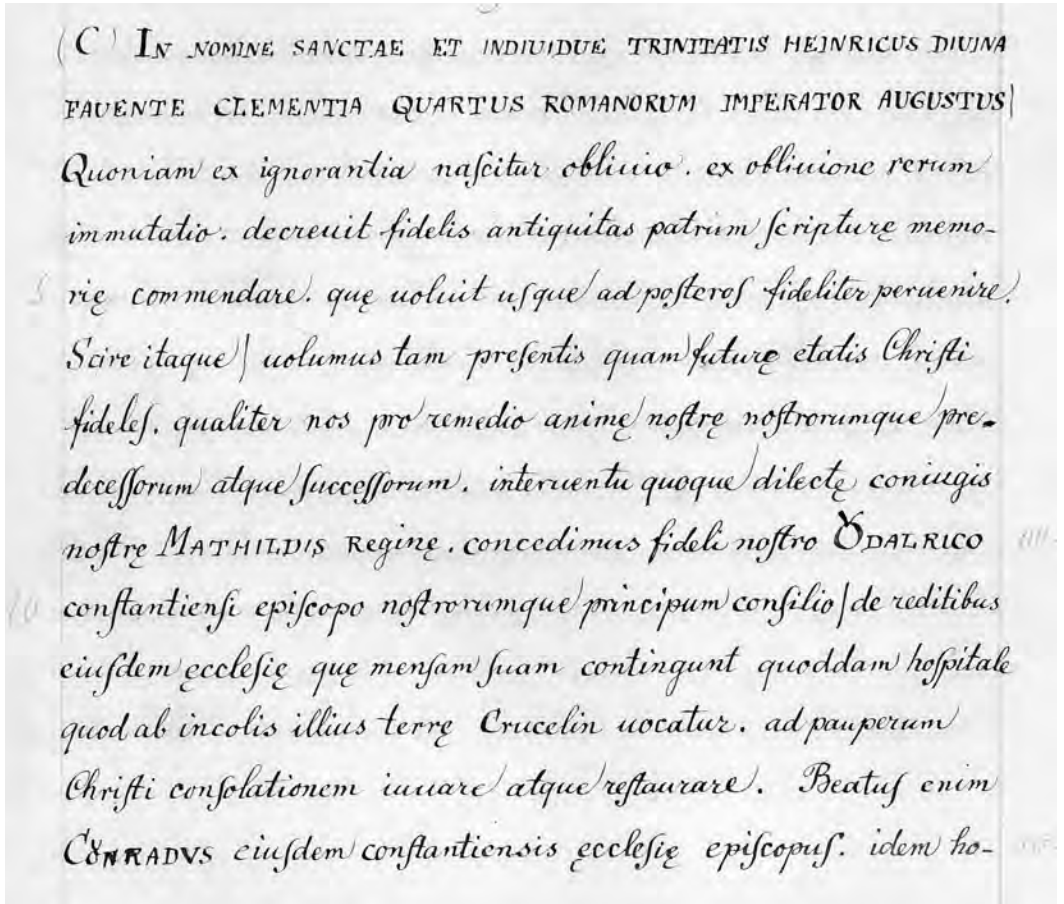 (C) IN NOMINE SANCTAE ET INDIUIDUE TRINITATIS HEINRICUS DIUINA
FAUENTE CLEMENTIA QUARTUS ROMANORUM IMPERATOR AUGUSTUS|
Quoniam ex ignorantia naſcitur obliuio. ex obliuione rerum
immutatio. decreuit fidelis antiquitas patrum ſcripturę memo-
5 rię commendare. quę uoluit uſque ad poſteroſ fideliter peruenire.
Scire itaque| uolumus tam preſentis quam futurę etatis Chriſti
fideleſ. qualiter nos pro remedio animę noſtrę noſtrorumque pre-
deceſſorum atque ſucceſſorum. interuentu quoque dilectę coniugis
noſtrę MATHILDIS Reginę. concedimus fideli noſtro ȢDALRICO
10 conſtantienſi epiſcopo noſtrorumque principum conſilio|de reditibus
eiuſdem ęccleſię quę menſam ſuam contingunt quoddam hoſpitale
quod ab incolis illius terrę Crucelin uocatur. ad pauperum
Chriſti conſolationem iuuare atque reſtaurare. Beatuſ enim
CȢNRADVS eiuſdem conſtantiensis ęccleſię epiſcopuſ. idem ho-